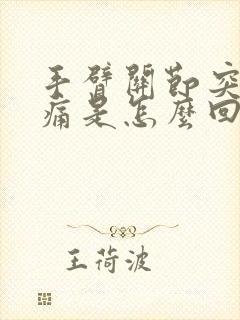 手臂關節突
痛是怎麼回
王荷波